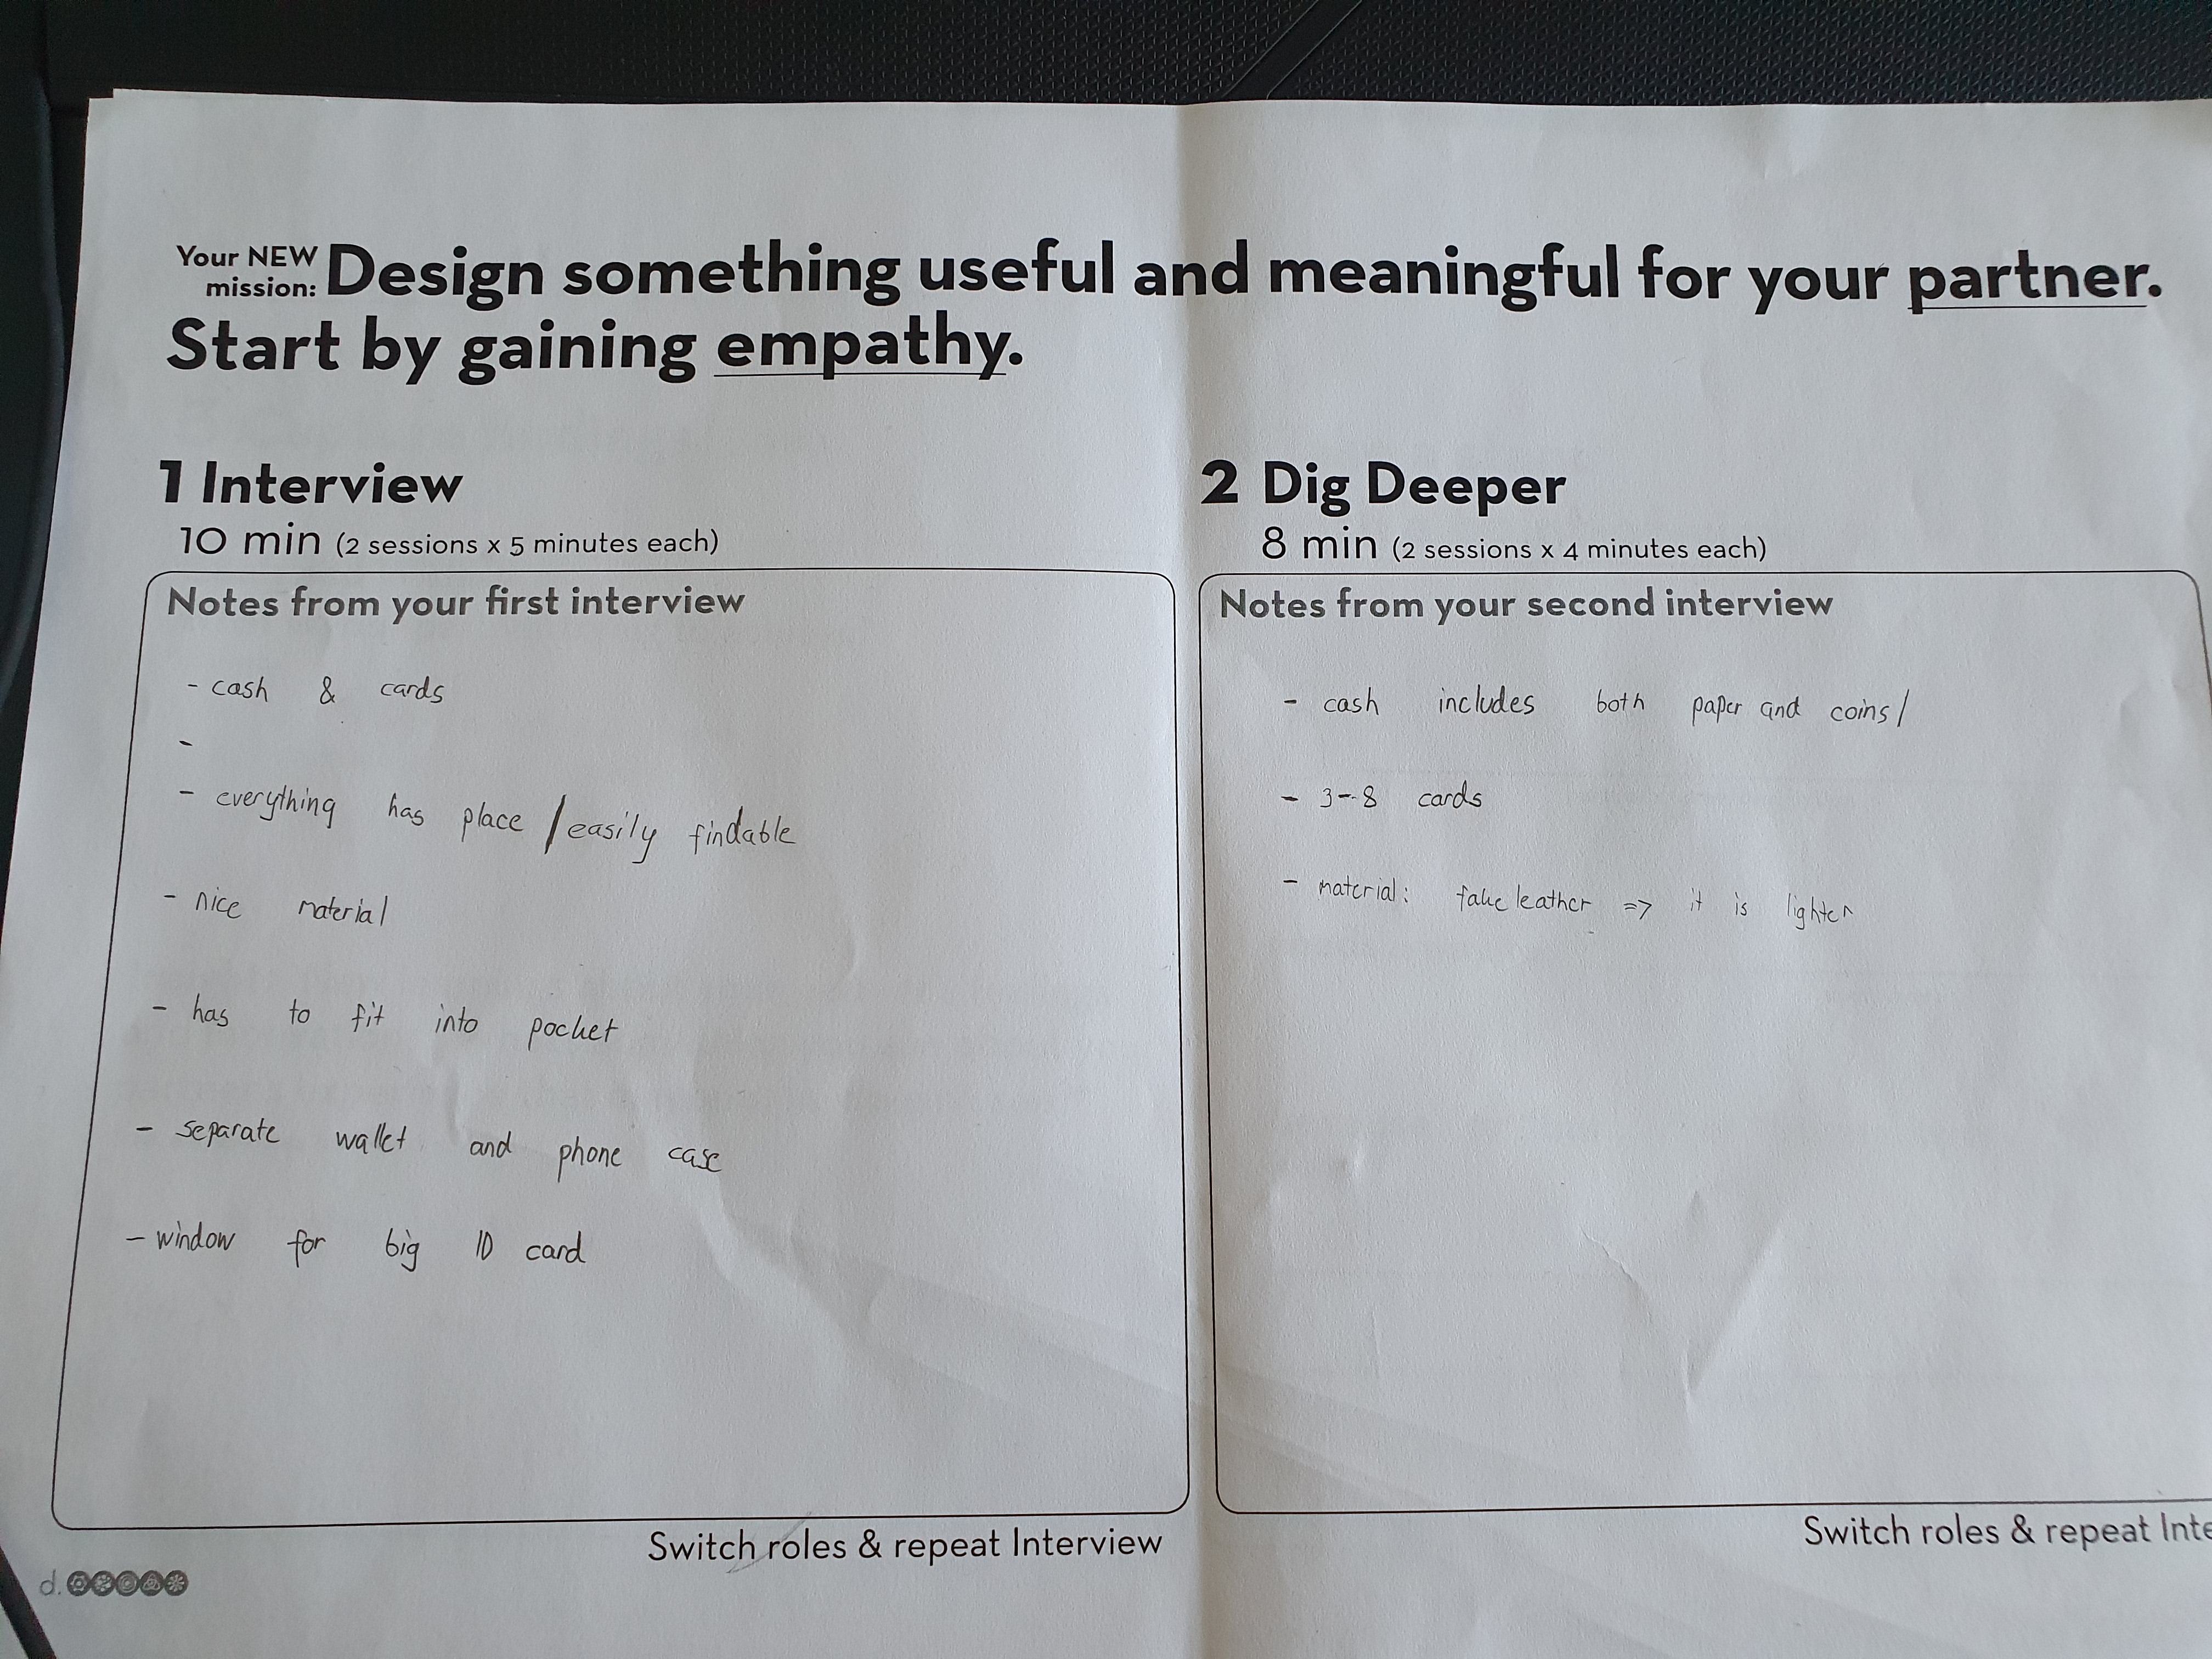 Your NEW
mission: Design something useful and meaningful for your partner.
Start by gaining empathy.
1 Interview
10 min (2 sessions x 5 minutes each)
Notes from your first interview
- cash & cards
-
- everything has place / easily findable
- nice material
- has to fit into pocket
- separate wallet and phone case
- window for big ID card
Switch roles & repeat Interview
2 Dig Deeper
8 min (2 sessions x 4 minutes each)
Notes from your second interview
- cash includes both paper and coins /
- 3-8 cards
- material: fake leather => it is lighter
Switch roles & repeat Inte
d.